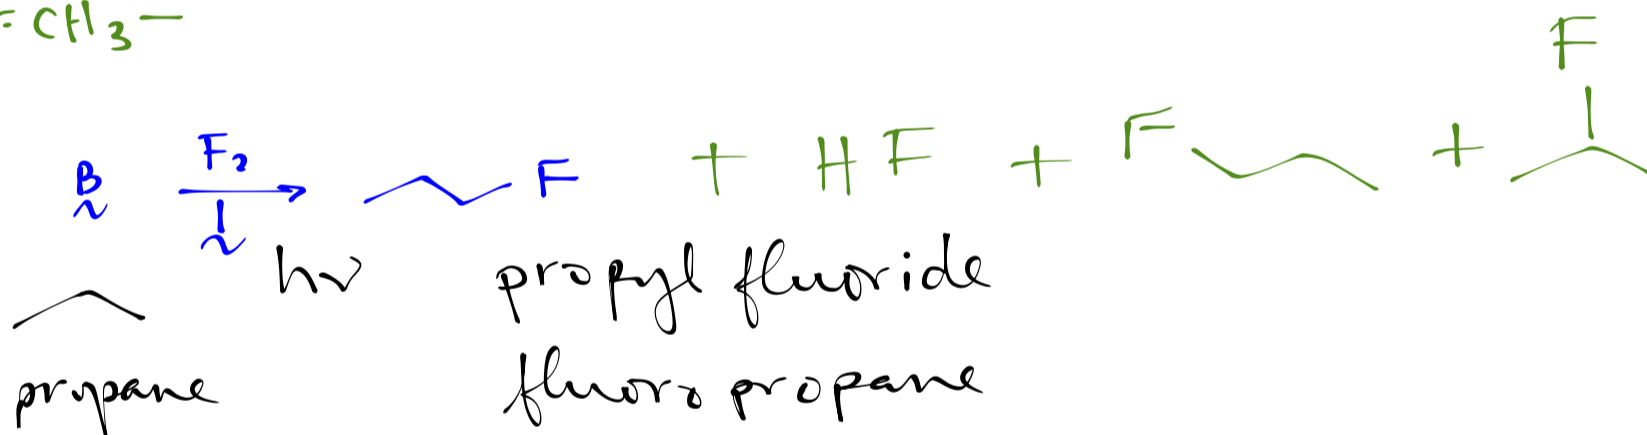 = CH3 -
F
B F2 → F + HF + F +
1
hν propyl fluoride
propane fluoro propane